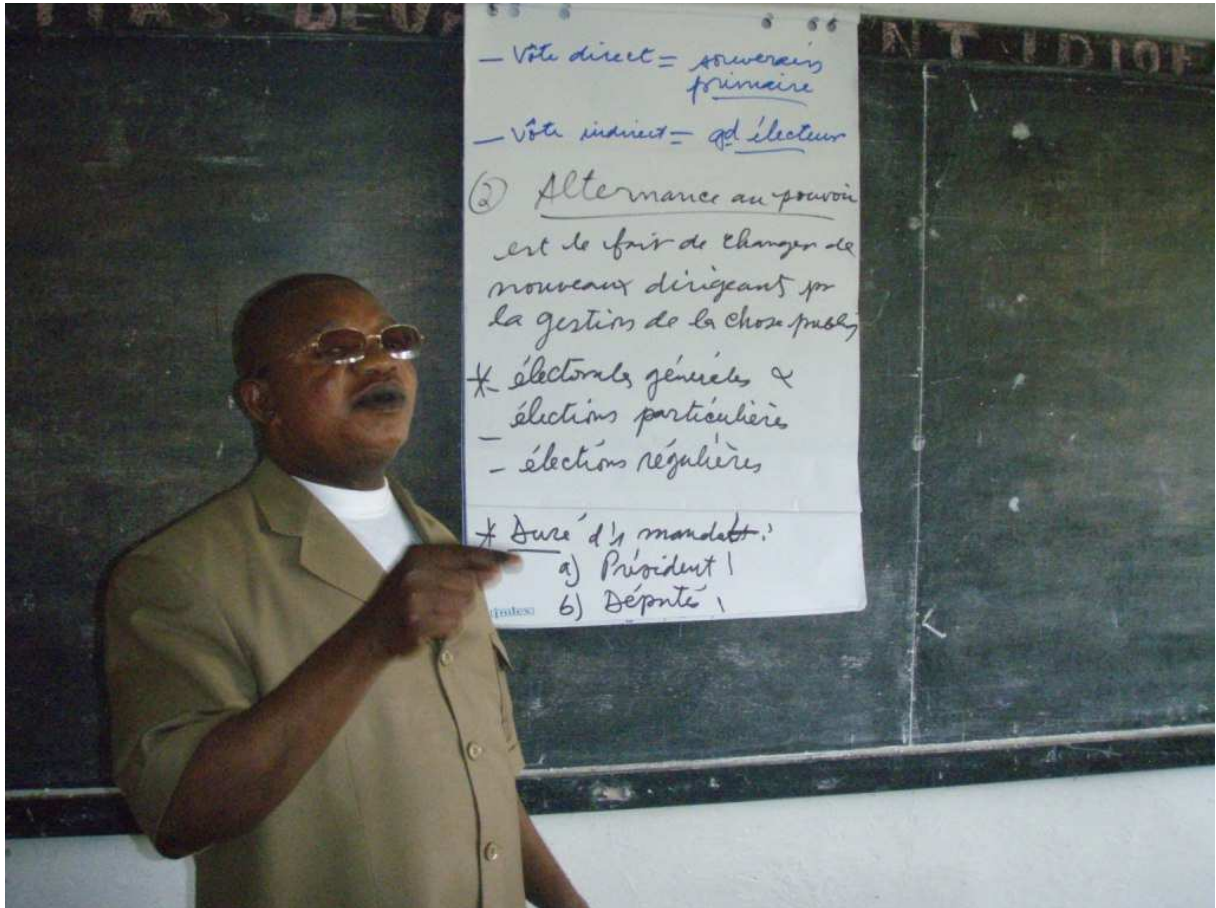 NT IDIOF
— Vôte direct = souverain
primaire
— Vôte indirect = gd électeur
② Alternance au pouvoir
est le fait de changer de
nouveaux dirigeants pr
la gestion de la chose publiq
* électorales générales &
– élections particulières
– élections régulières
* Duré d'1 mandat :
a) Président !
b) Député